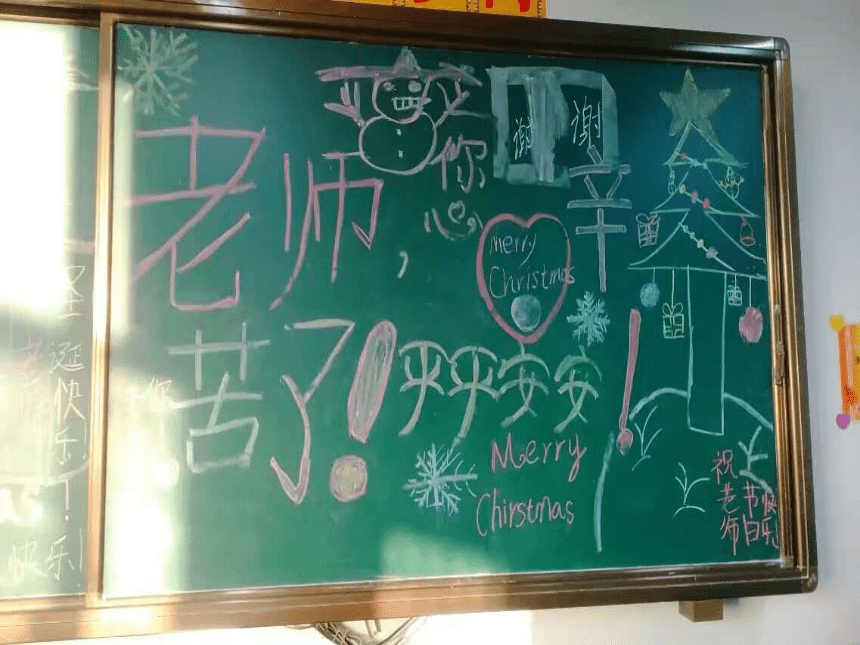 老师,
您
谢谢
辛
苦了!
Merry
Christmas
平平安安!
Merry
Chirstmas
祝
老师
节日
快乐
圣诞快乐!
快乐!